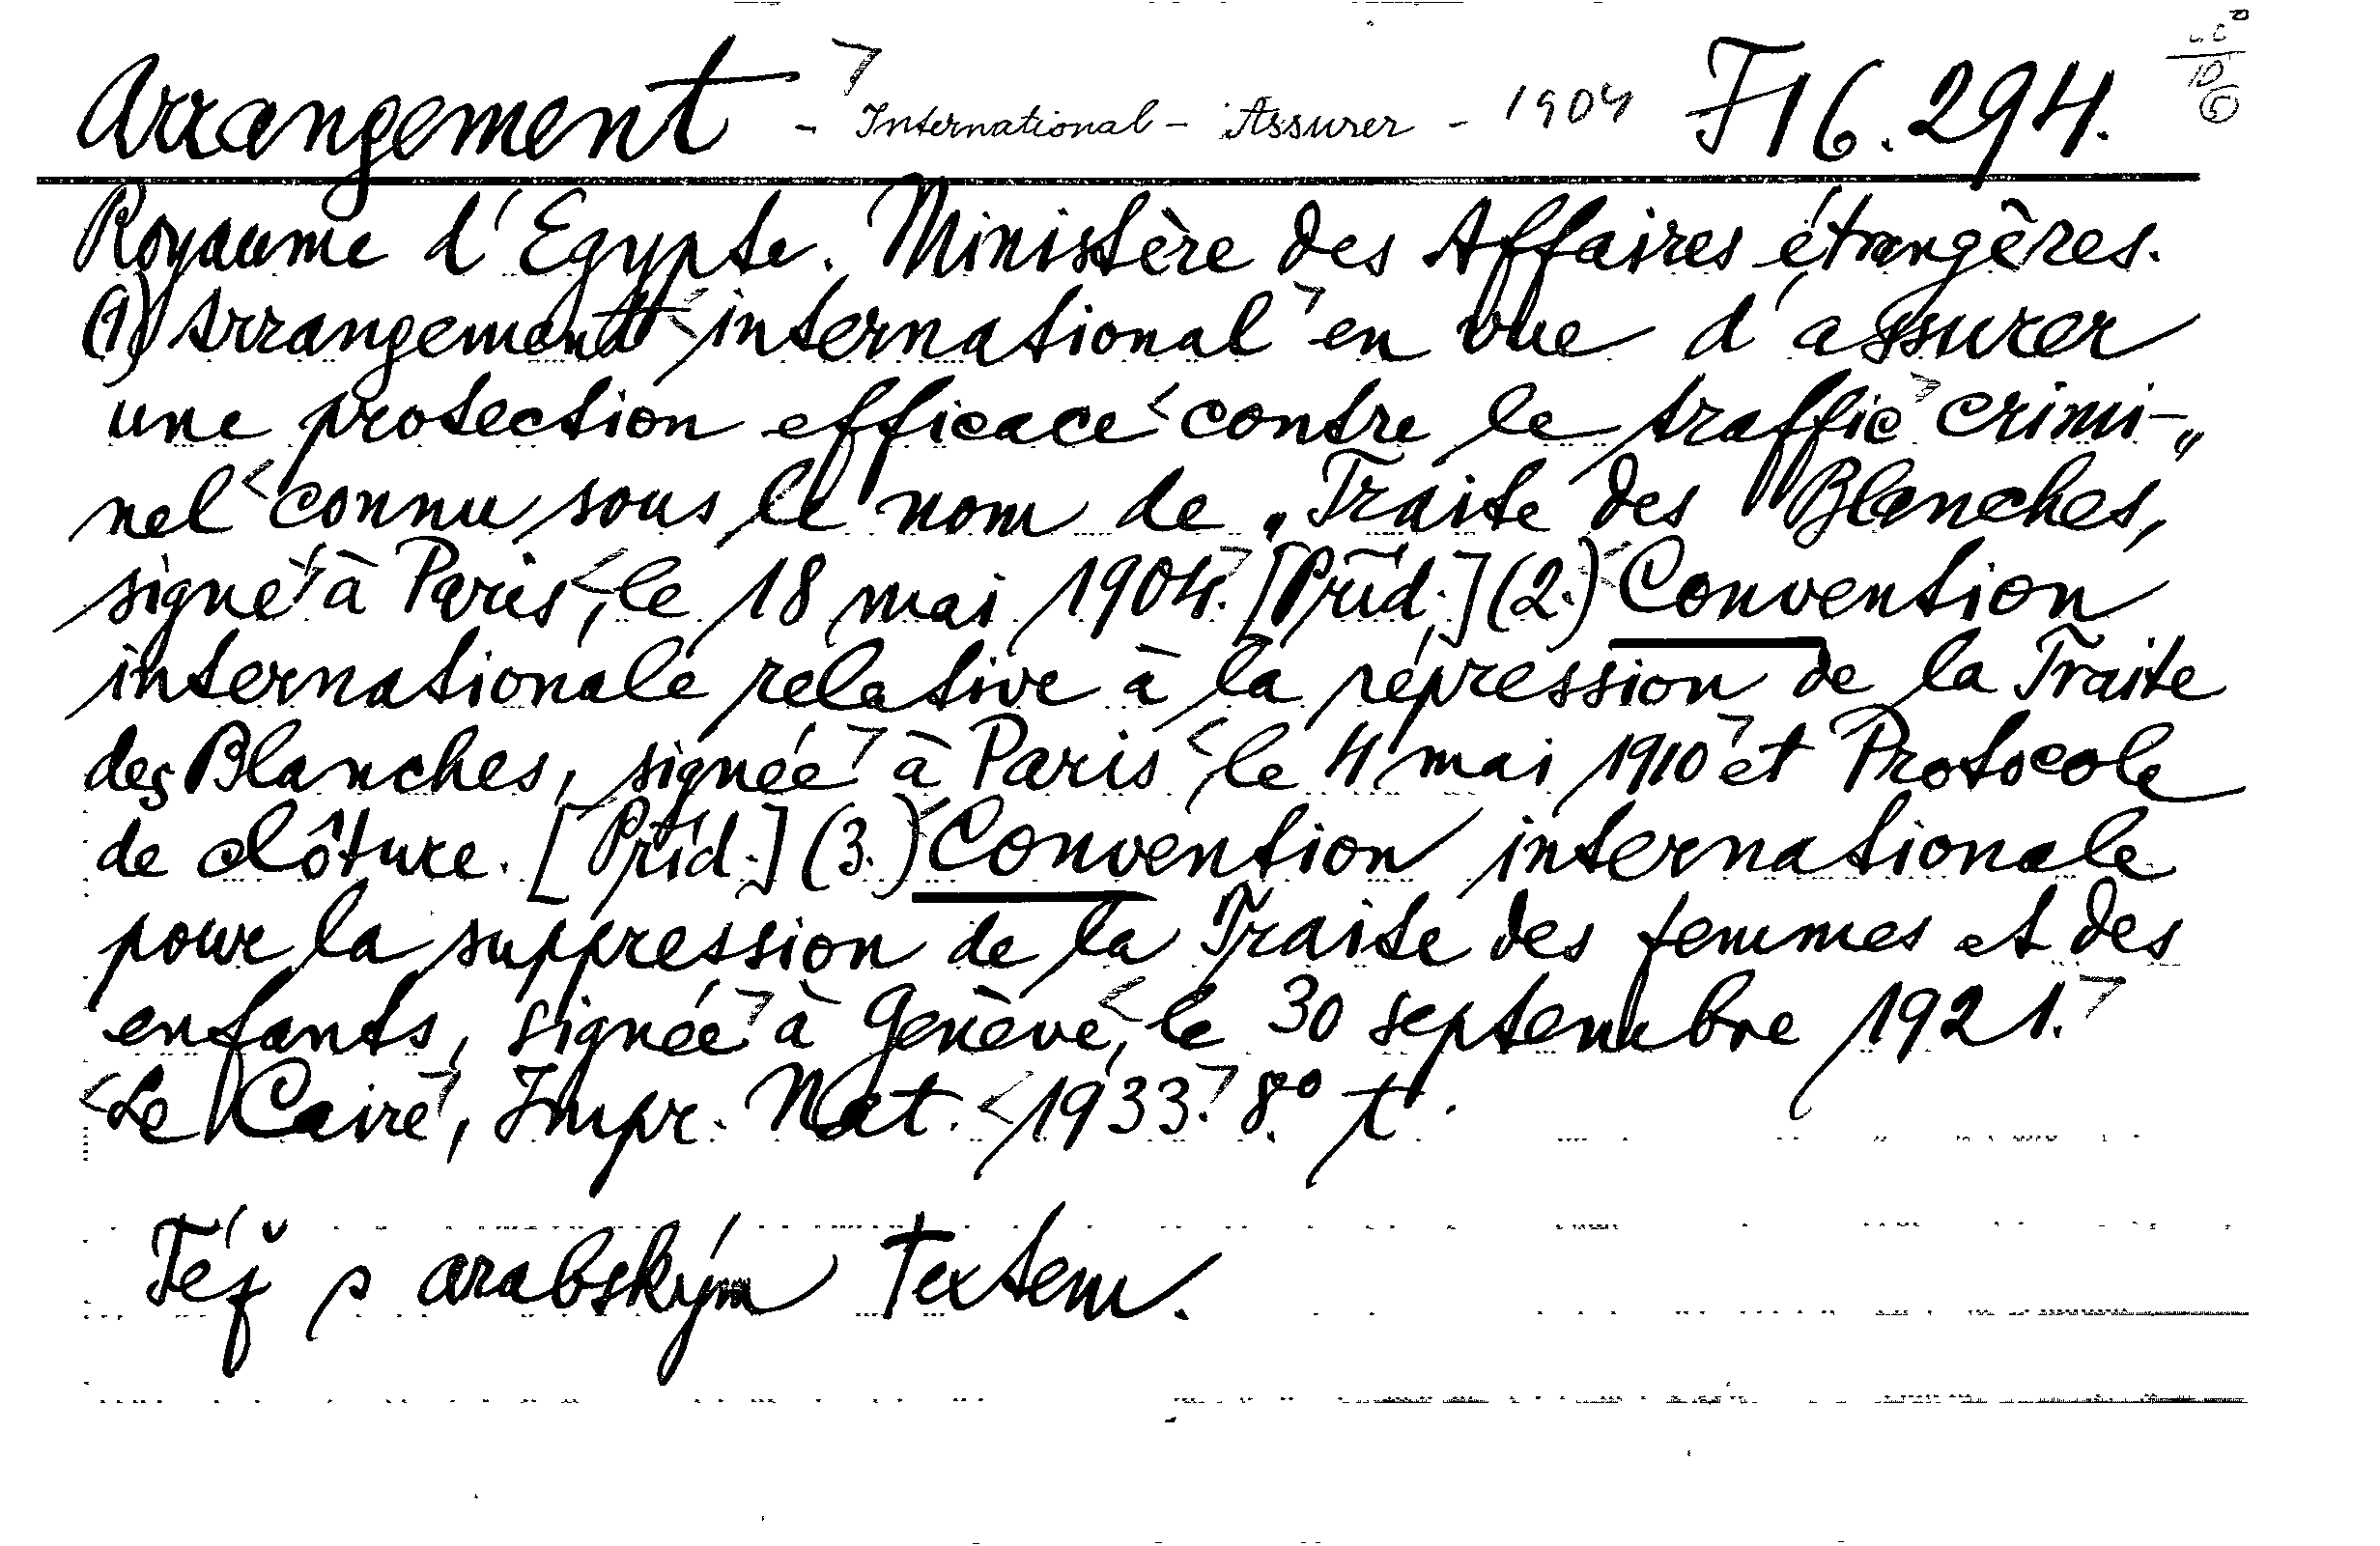 Arrangement - International - Assurer - 1904 F 16.294.
Royaume d'Egypte. Ministère des Affaires étrangères.
(1) Arrangement international en vue d'assurer
une protection efficace contre le traffic crimi-
nel connu sous le nom de „Traite des Blanches,"
signé à Paris, le 18 mai 1904. [Příd.] (2.) Convention
internationale relative à la répression de la Traite
des Blanches, signée à Paris, le 4 mai 1910 et Protocole
de clôture. [Příd.] (3.) Convention internationale
pour la suppression de la Traite des femmes et des
enfants, signée à Genève, le 30 septembre 1921.
Le Caire, Impr. Nat. 1933. 8°. t.
Též s arabským textem.